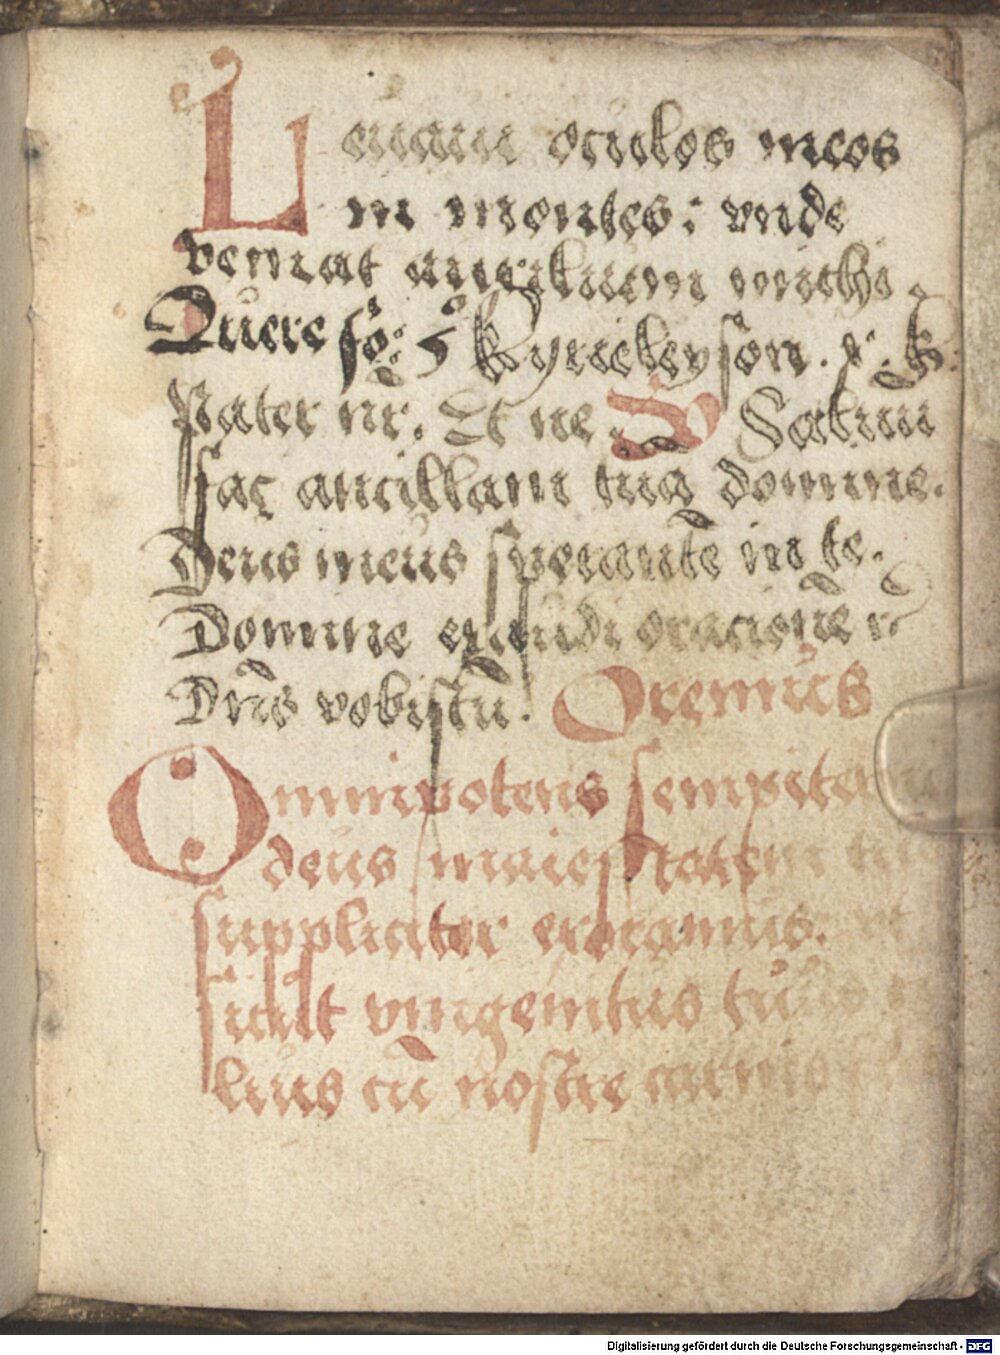 Leuaui oculos meos
in montes: vnde
veniat auxilium michi
Quere fo: 5 Kyrieleyson. x. k.
Pater nr. Et ne. V Saluā
fac ancillam tuā domine.
Deus meus sperantē in te.
Domine exaudi oracionē
Dn̄s vobiscū. Oremus
Omnipotens sempiterne
deus maiestatem tuā
suppliciter exoramus.
sicut vnigenitus tuus
lius cū nostre carnis
Digitalisierung gefördert durch die Deutsche Forschungsgemeinschaft - DFG